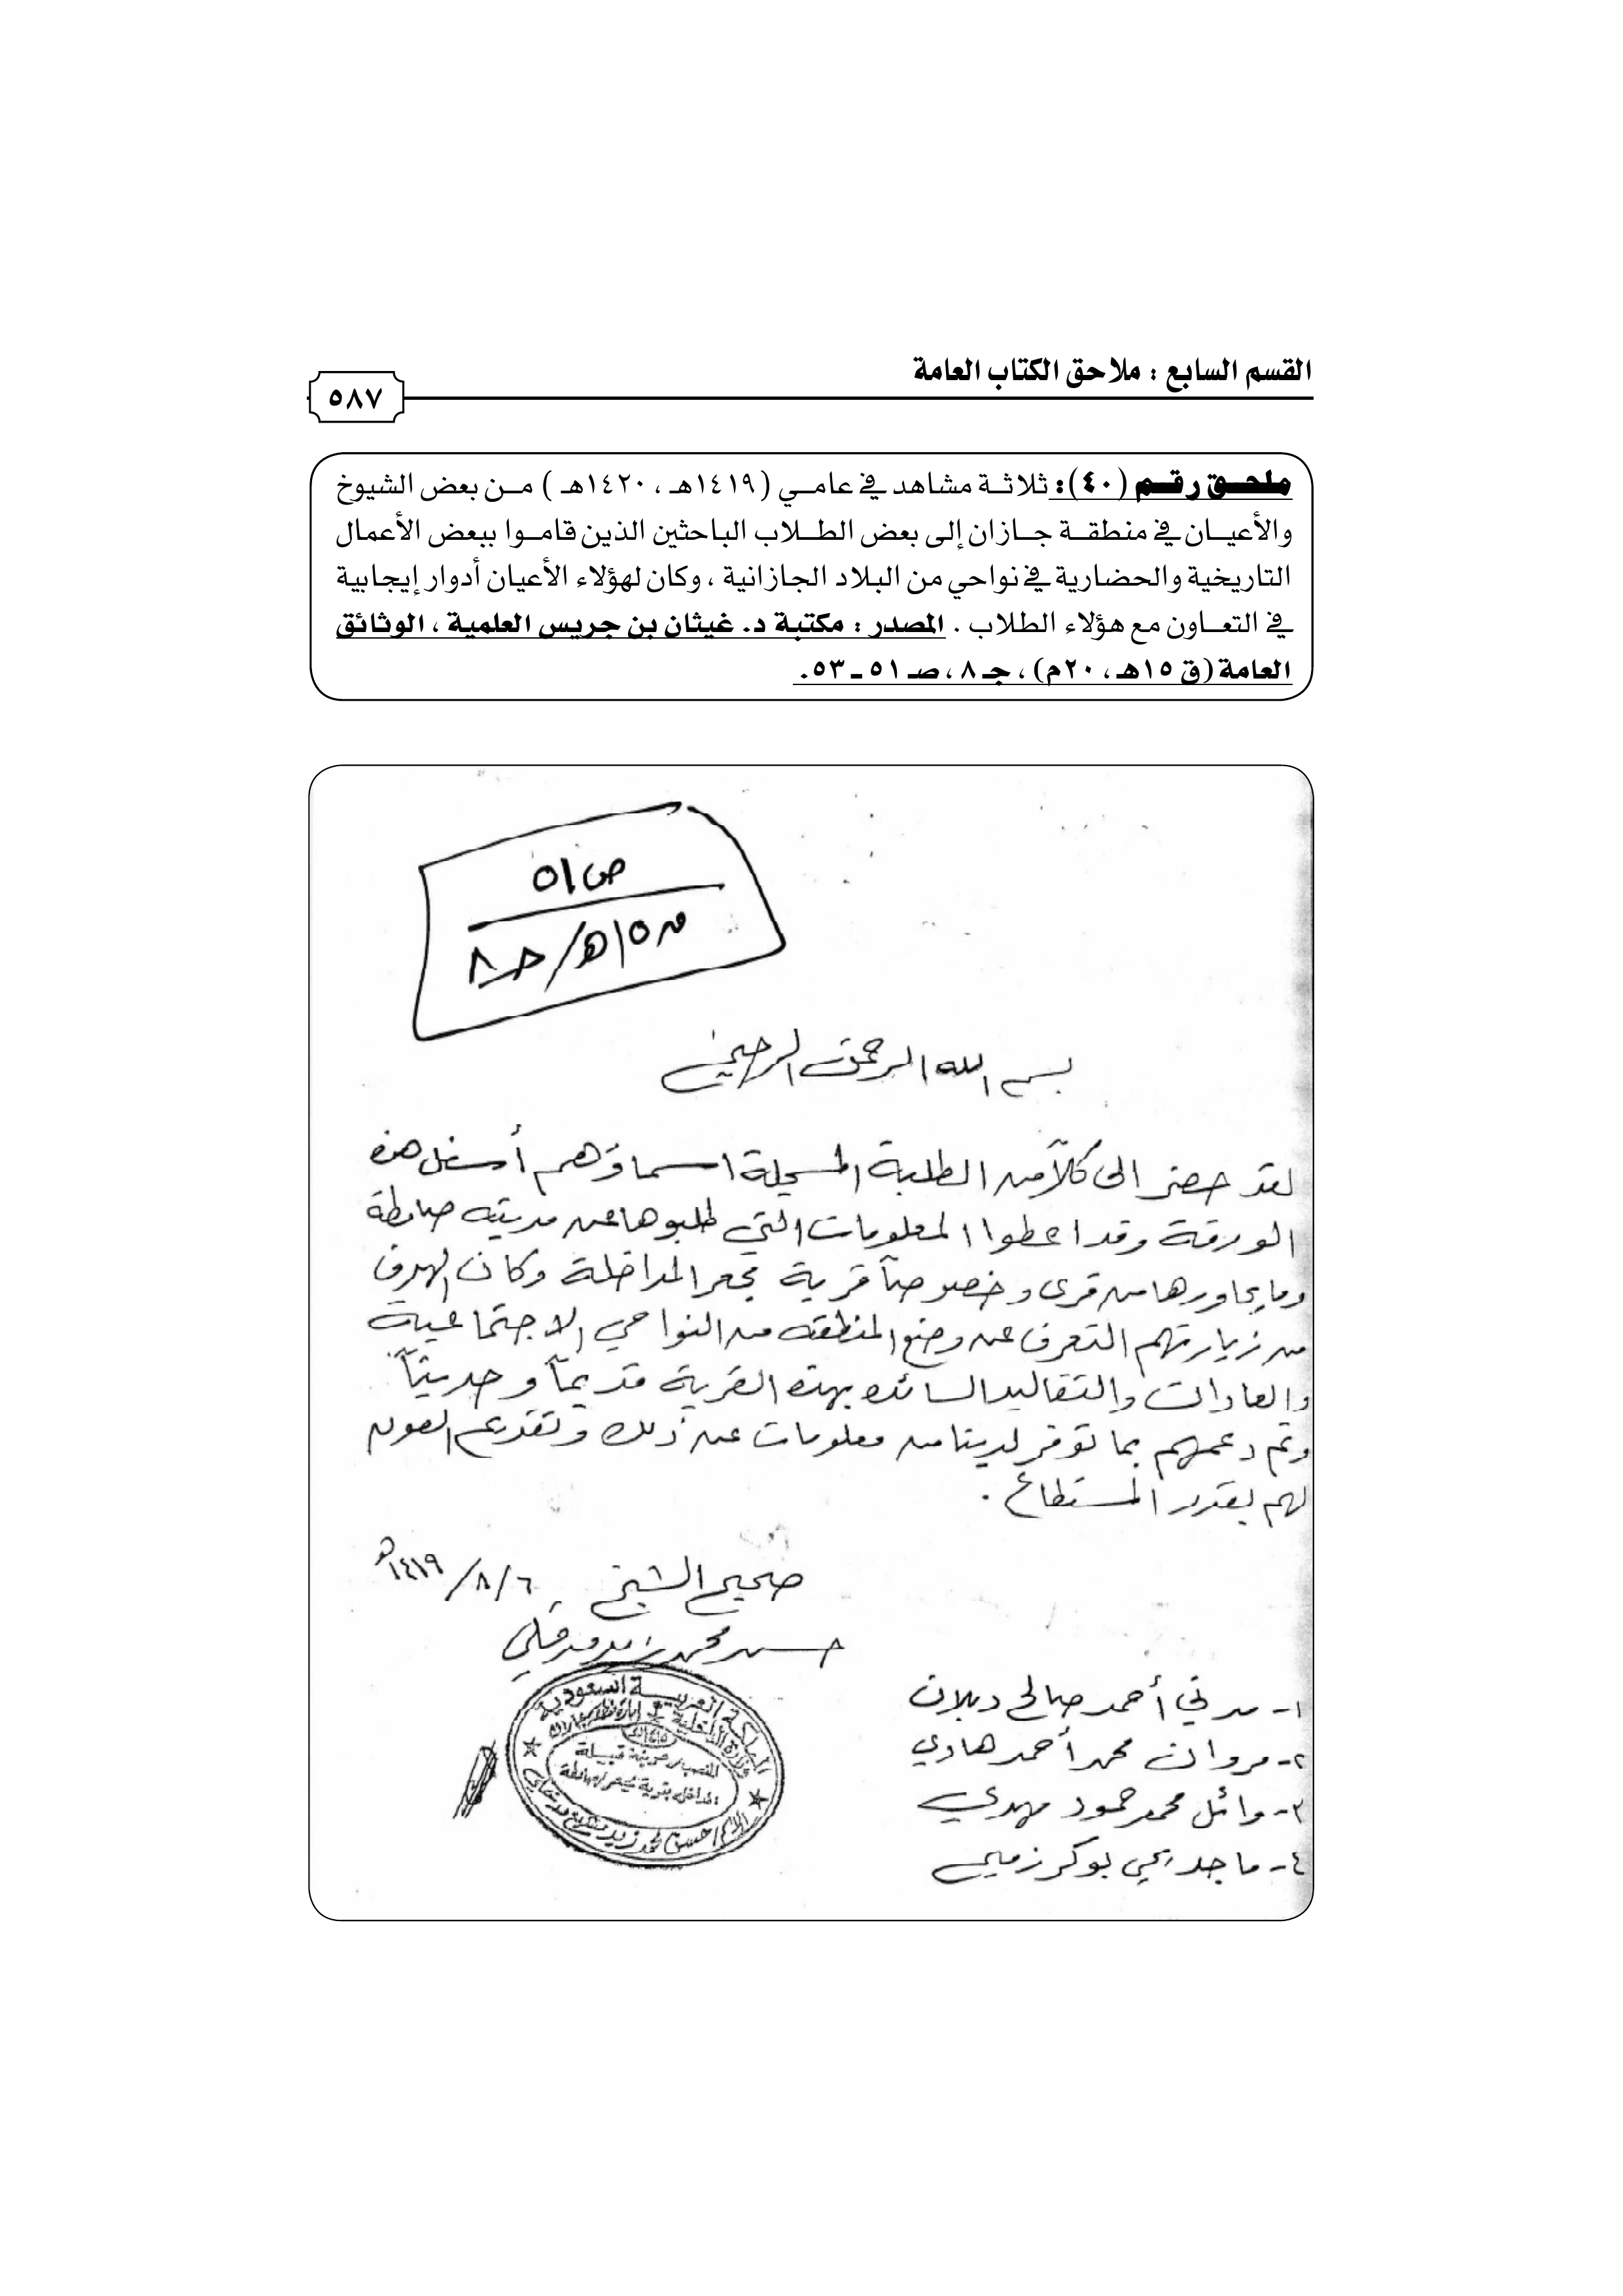 القسم السابع : ملاحق الكتاب العامة
٥٨٧
ملحق رقم (٤٠): ثلاثة مشاهد في عامي (١٤١٩هـ ، ١٤٢٠هـ ) من بعض الشيوخ
والأعيان في منطقة جازان إلى بعض الطلاب الباحثين الذين قاموا ببعض الأعمال
التاريخية والحضارية في نواحي من البلاد الجازانية ، وكان لهؤلاء الأعيان أدوار إيجابية
في التعاون مع هؤلاء الطلاب . المصدر : مكتبة د. غيثان بن جريس العلمية ، الوثائق
العامة (ق ١٥هـ ، ٢٠م) ، جـ ٨ ، صـ ٥١ ـ ٥٣.
ص ٥١
ق ١٥هـ / جـ ٨
بسم الله الرحمن الرحيم
لقد حضر الى كلاً من الطلبة المسجلة اسماؤهم أسفل هذه
الورقة وقد اعطوا المعلومات التي طلبوها عن مدينة صامطة
وما يجاورها من قرى وخصوصاً قرية مجعر المداخلة وكان الهدف
من زيارتهم التعرف عن وضع المنطقه من النواحي الاجتماعية
والعادات والتقاليد السائده بهذه القرية قديماً وحديثاً
وتم دعمهم بما توفر لدينا من معلومات عن ذلك وتقديم العون
لهم بقدر المستطاع .
صحيح الشيخ ٦/ ٨/ ١٤١٩هـ
حسن محمد زيد مدخلي
المملكة العربية السعودية
وزارة الداخلية
قبيلة
١- مدني أحمد صالح دبلان
٢- مروان محمد أحمد هادي
٣- وائل محمد حمود مهدي
٤- ماجد يحي بوكر زميم